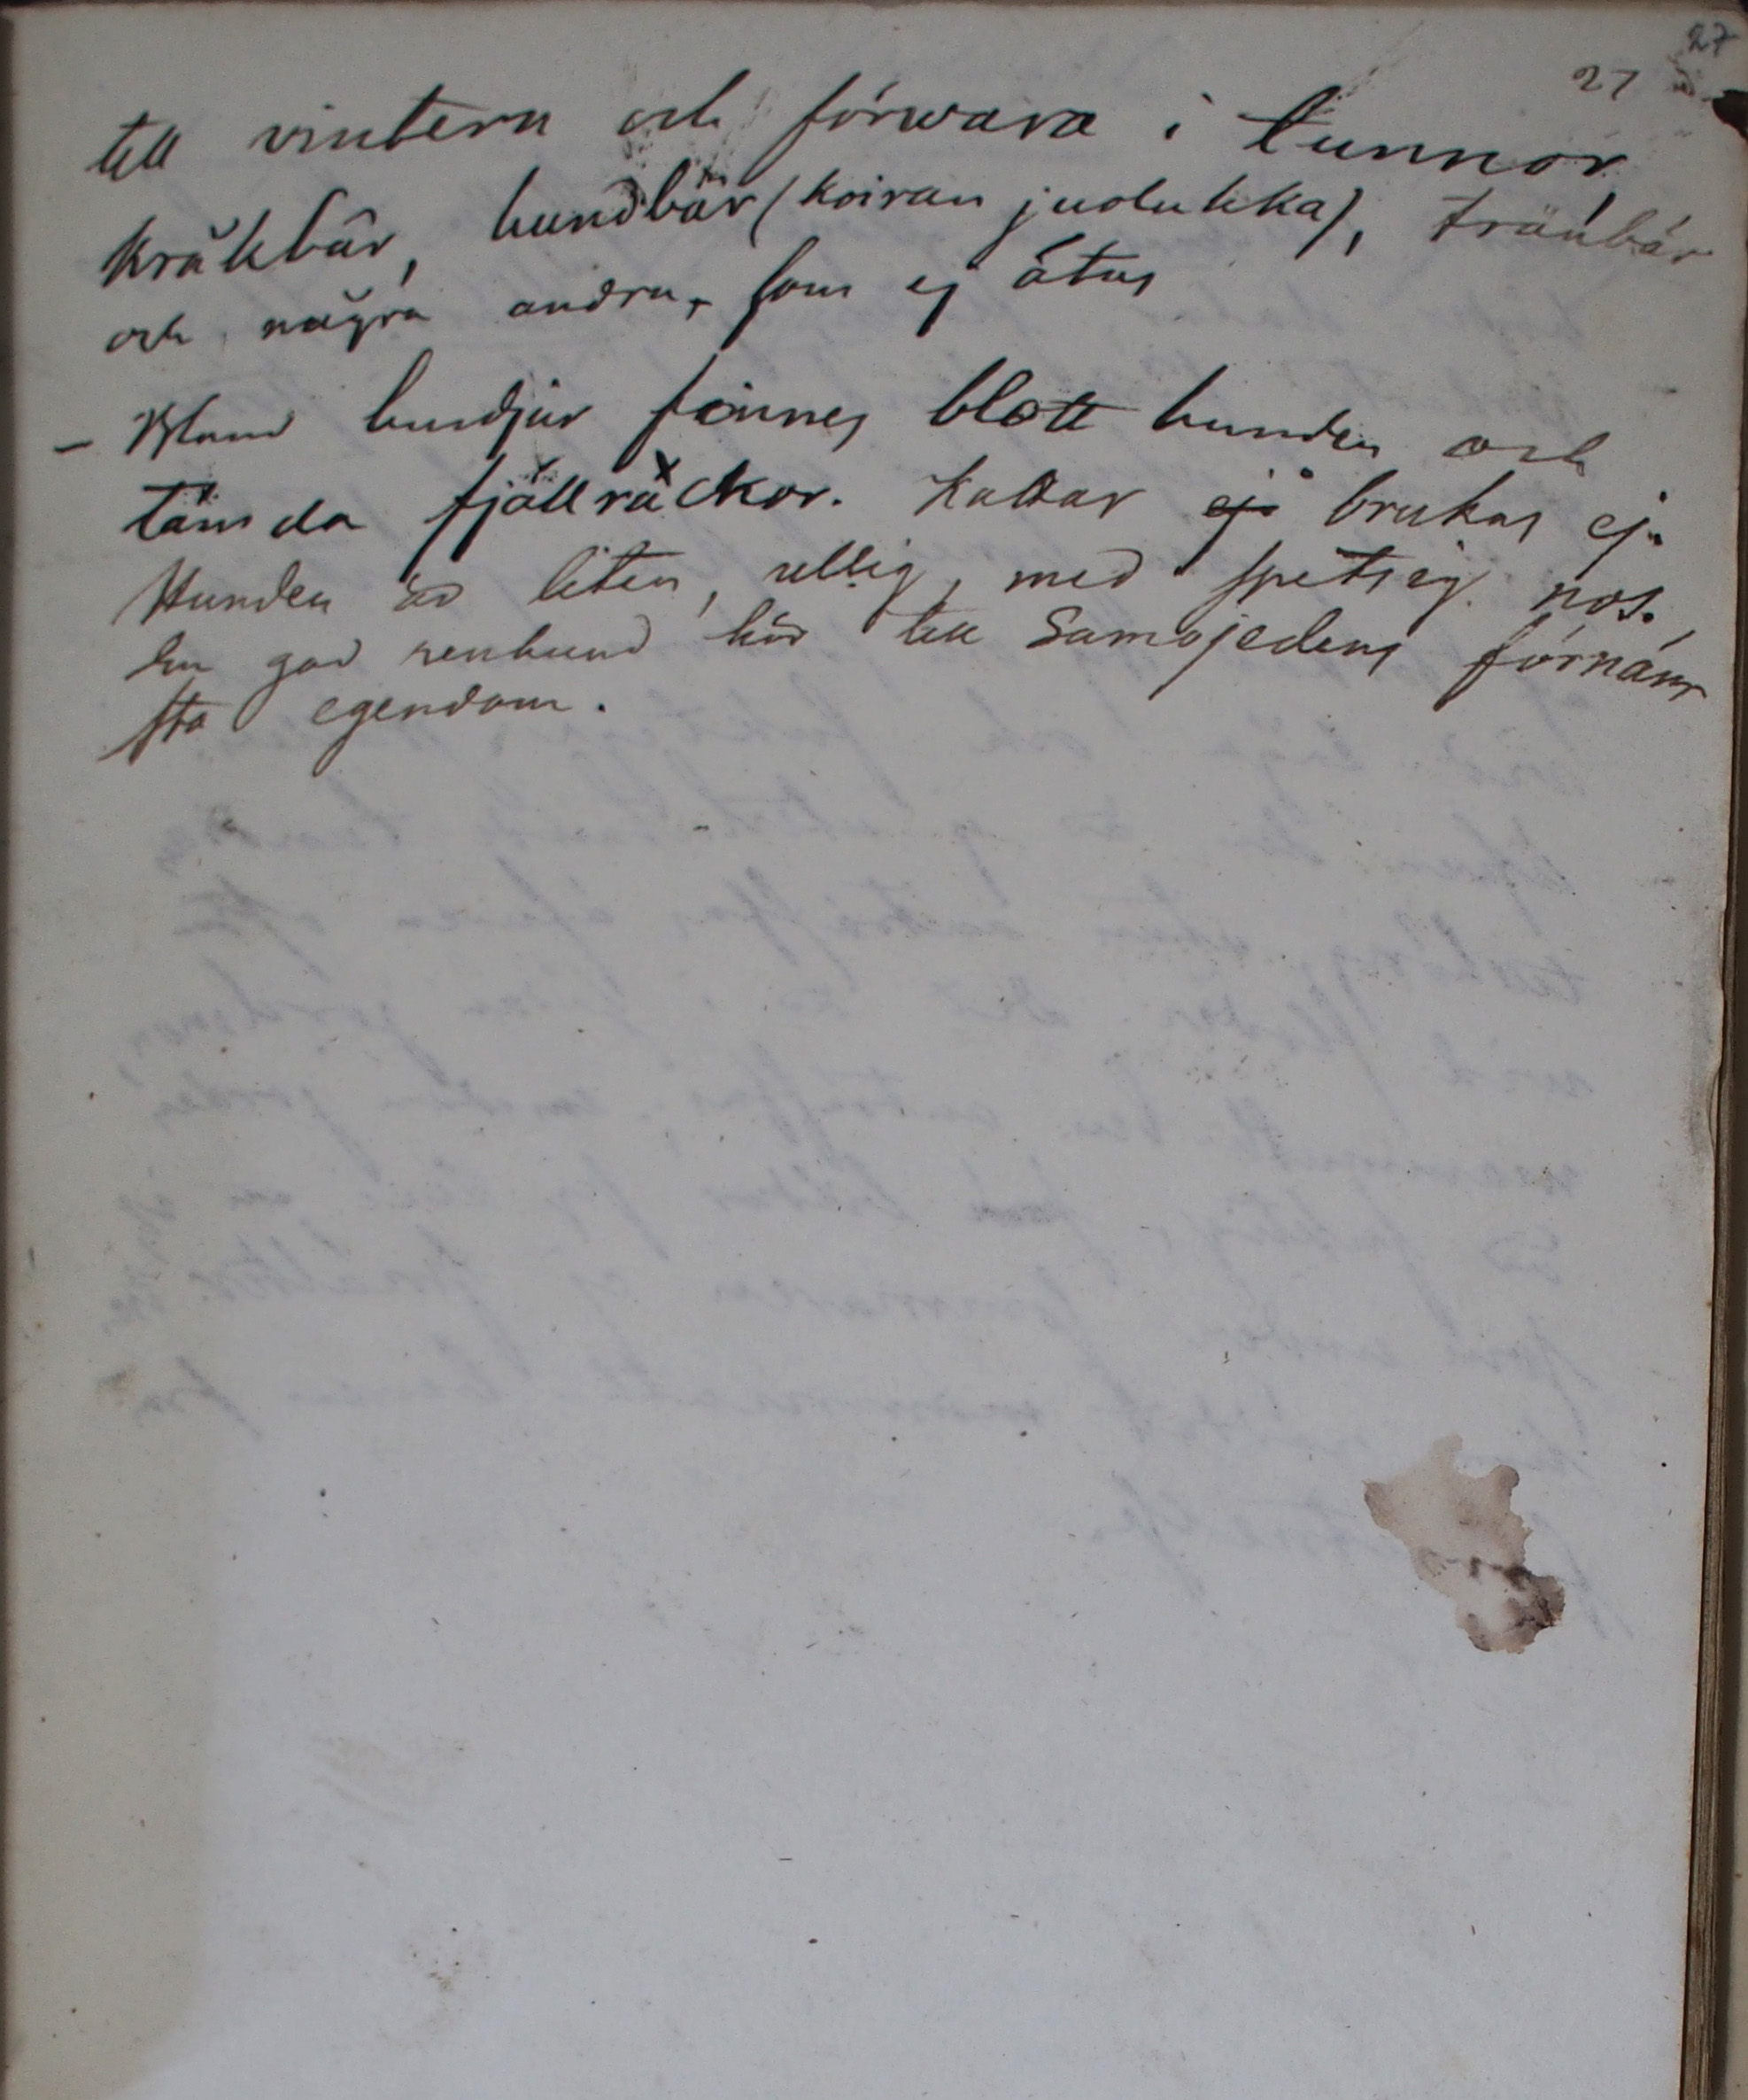 27
27
till vintern och förwara i tunnor,
Kråkbär, hundbär (koiran juolukka), tranbär
och några andra, som ej ätas
– Bland husdjur finnes blott hunden och
tämda fjällräckor. Kattar ej brukas ej.
Hunden är liten, ullig, med spetsig nos.
En god renhund hör till Samojedens förnäm
sta egendom.